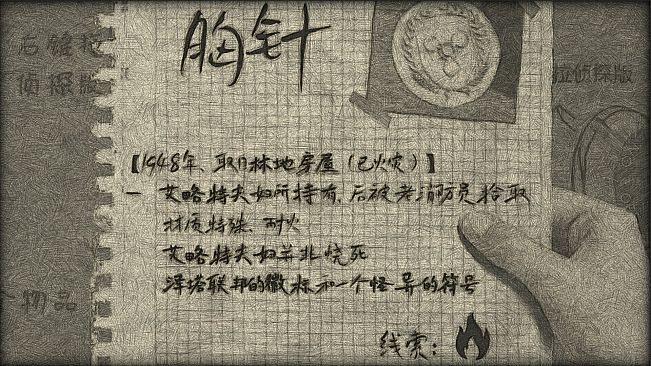 胸针
后铭拉
侦探版
拉侦探版
【1948年、取自林地房屋（已火灾）】
一 艾略特夫妇所持有，后被老消防员拾取
材质特殊、耐火
艾略特夫妇并非烧死
泽塔联邦的徽标和一个怪异的符号
物品
线索：